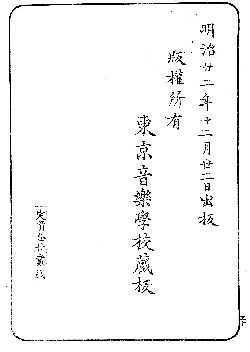 明治廿二年十二月廿二日出板
版權所有
東京音樂學校藏板